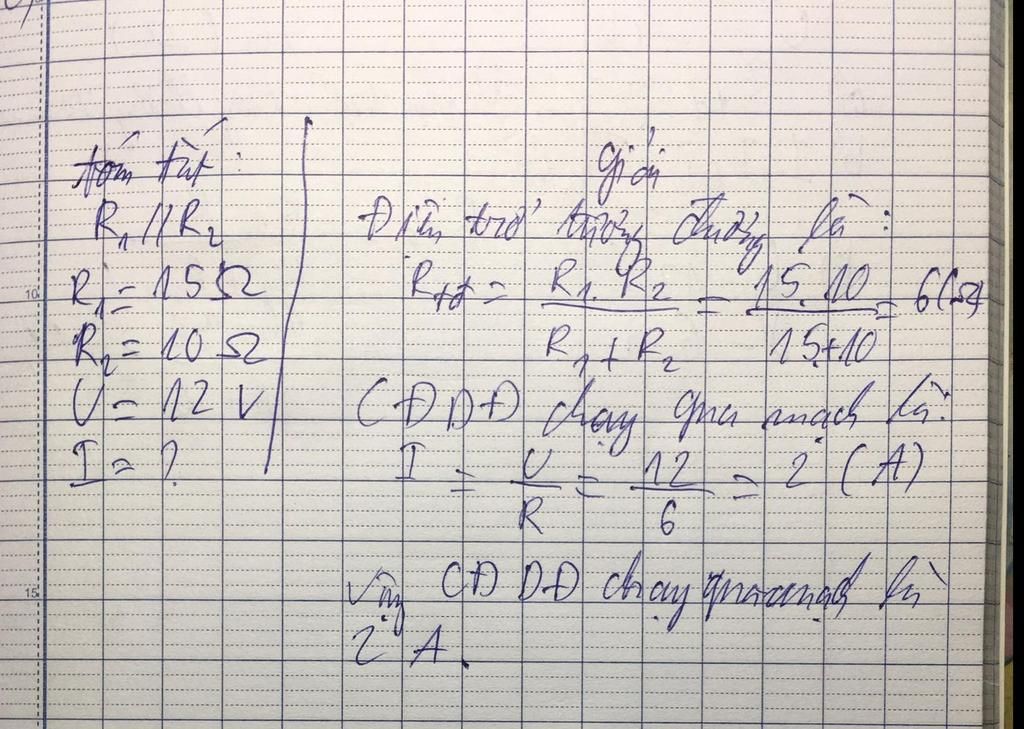 tóm tắt:
R₁ // R₂
R₁ = 15 Ω
R₂ = 10 Ω
U = 12 V
I = ?
giải
Điện trở tương đương là:
Rtđ = R₁. R₂ / R₁ + R₂ = 15. 10 / 15 + 10 = 6 (Ω)
CĐDĐ chạy qua mạch là:
I = U / R = 12 / 6 = 2 (A)
Vậy CĐDĐ chạy qua mạch là
2 A.
10
15